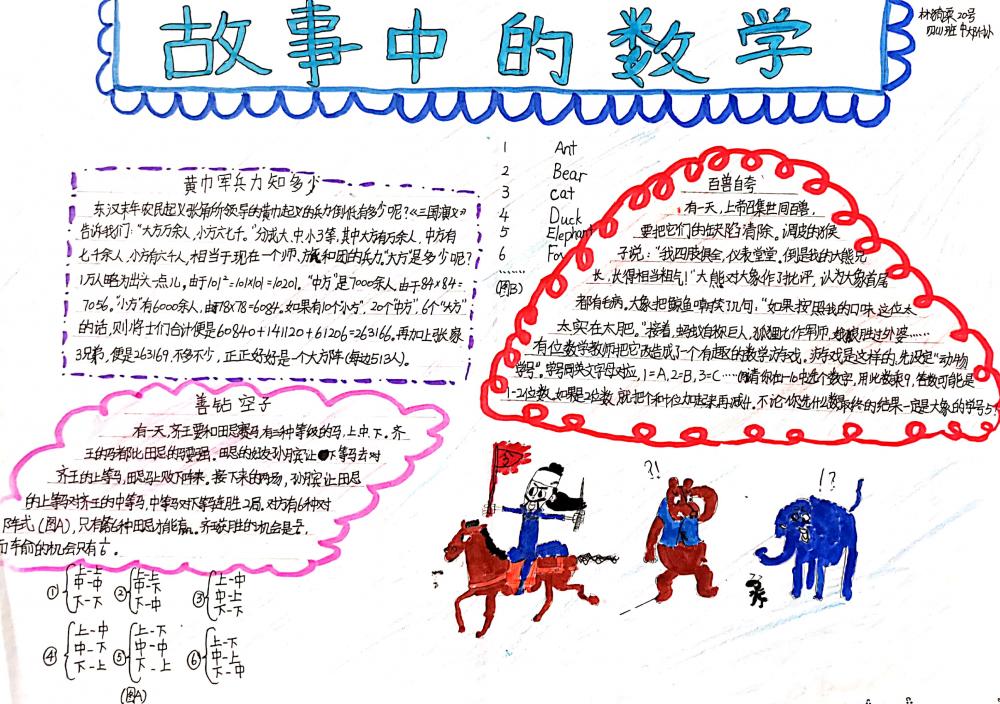 故事中的数学
20号
黄巾军兵力知多少
东汉末年农民起义张角所领导的黄巾起义的兵力倒底有多少呢?《三国演义》
告诉我们:“大方万余人,小方六七千。”分成大、中、小3等,其中大方有万余人,中方有
七千余人,小方有六千人,相当于现在一个师、旅和团的兵力。“大方”是多少呢?
1万人略为出头一点儿,由于101²=101×101=10201。“中方”是7000余人,由于84×84=
7056。“小方”有6000余人,由于78×78=6084。如果有10个“小方”,20个“中方”,6个“大方”
的话,则将士们合计便是60840+141120+61206=263166。再加上张家
3兄弟,便是263169,不多不少,正正好好是一个大方阵(每边513人)。
善钻空子
有一天,齐王要和田忌赛马,有三种等级的马,上、中、下。齐
王的马都比田忌的要强。田忌的处友孙膑让下等马去对
齐王的上等马,田忌马败下阵来。接下来的两场,孙膑让田忌
的上等马对齐王的中等马,中等马对下等马连胜2局。对方有6种对
阵式,(图A),只有第6种田忌才能赢。齐王获胜的机会是5/6,
而丰俞的机会只有1/6。
① 上-上 中-中 下-下
② 上-上 中-下 下-中
③ 上-中 中-上 下-下
④ 上-中 中-下 下-上
⑤ 上-下 中-中 下-上
⑥ 上-下 中-上 下-中
(图A)
1 Ant
2 Bear
3 cat
4 Duck
5 Elephant
6 Fox
……
(图B)
百兽自夸
有一天,上帝召集世间百兽,
要把它们的缺陷清除。调皮的猴
子说:“我四肢俱全,仪表堂堂。倒是我的大熊兄
长,长得相当粗气!”大熊对大象作了批评,认为大象首尾
都有毛病。大象把鲸鱼嘲笑了几句,“如果按照我的口味,这位太
太实在太肥。”接着,蚂蚁自称巨人,狐狸比作军师,
有位数学教师把它改造成了个有趣的数学游戏。游戏是这样的,先设定“动物
学号”。字号同英文字母对应,1=A,2=B,3=C……
1-2位数,如果是2位数,就把个和十位加起来再减4。不论你选什么数最终的结果一定是大象的学号5?
?!
!?